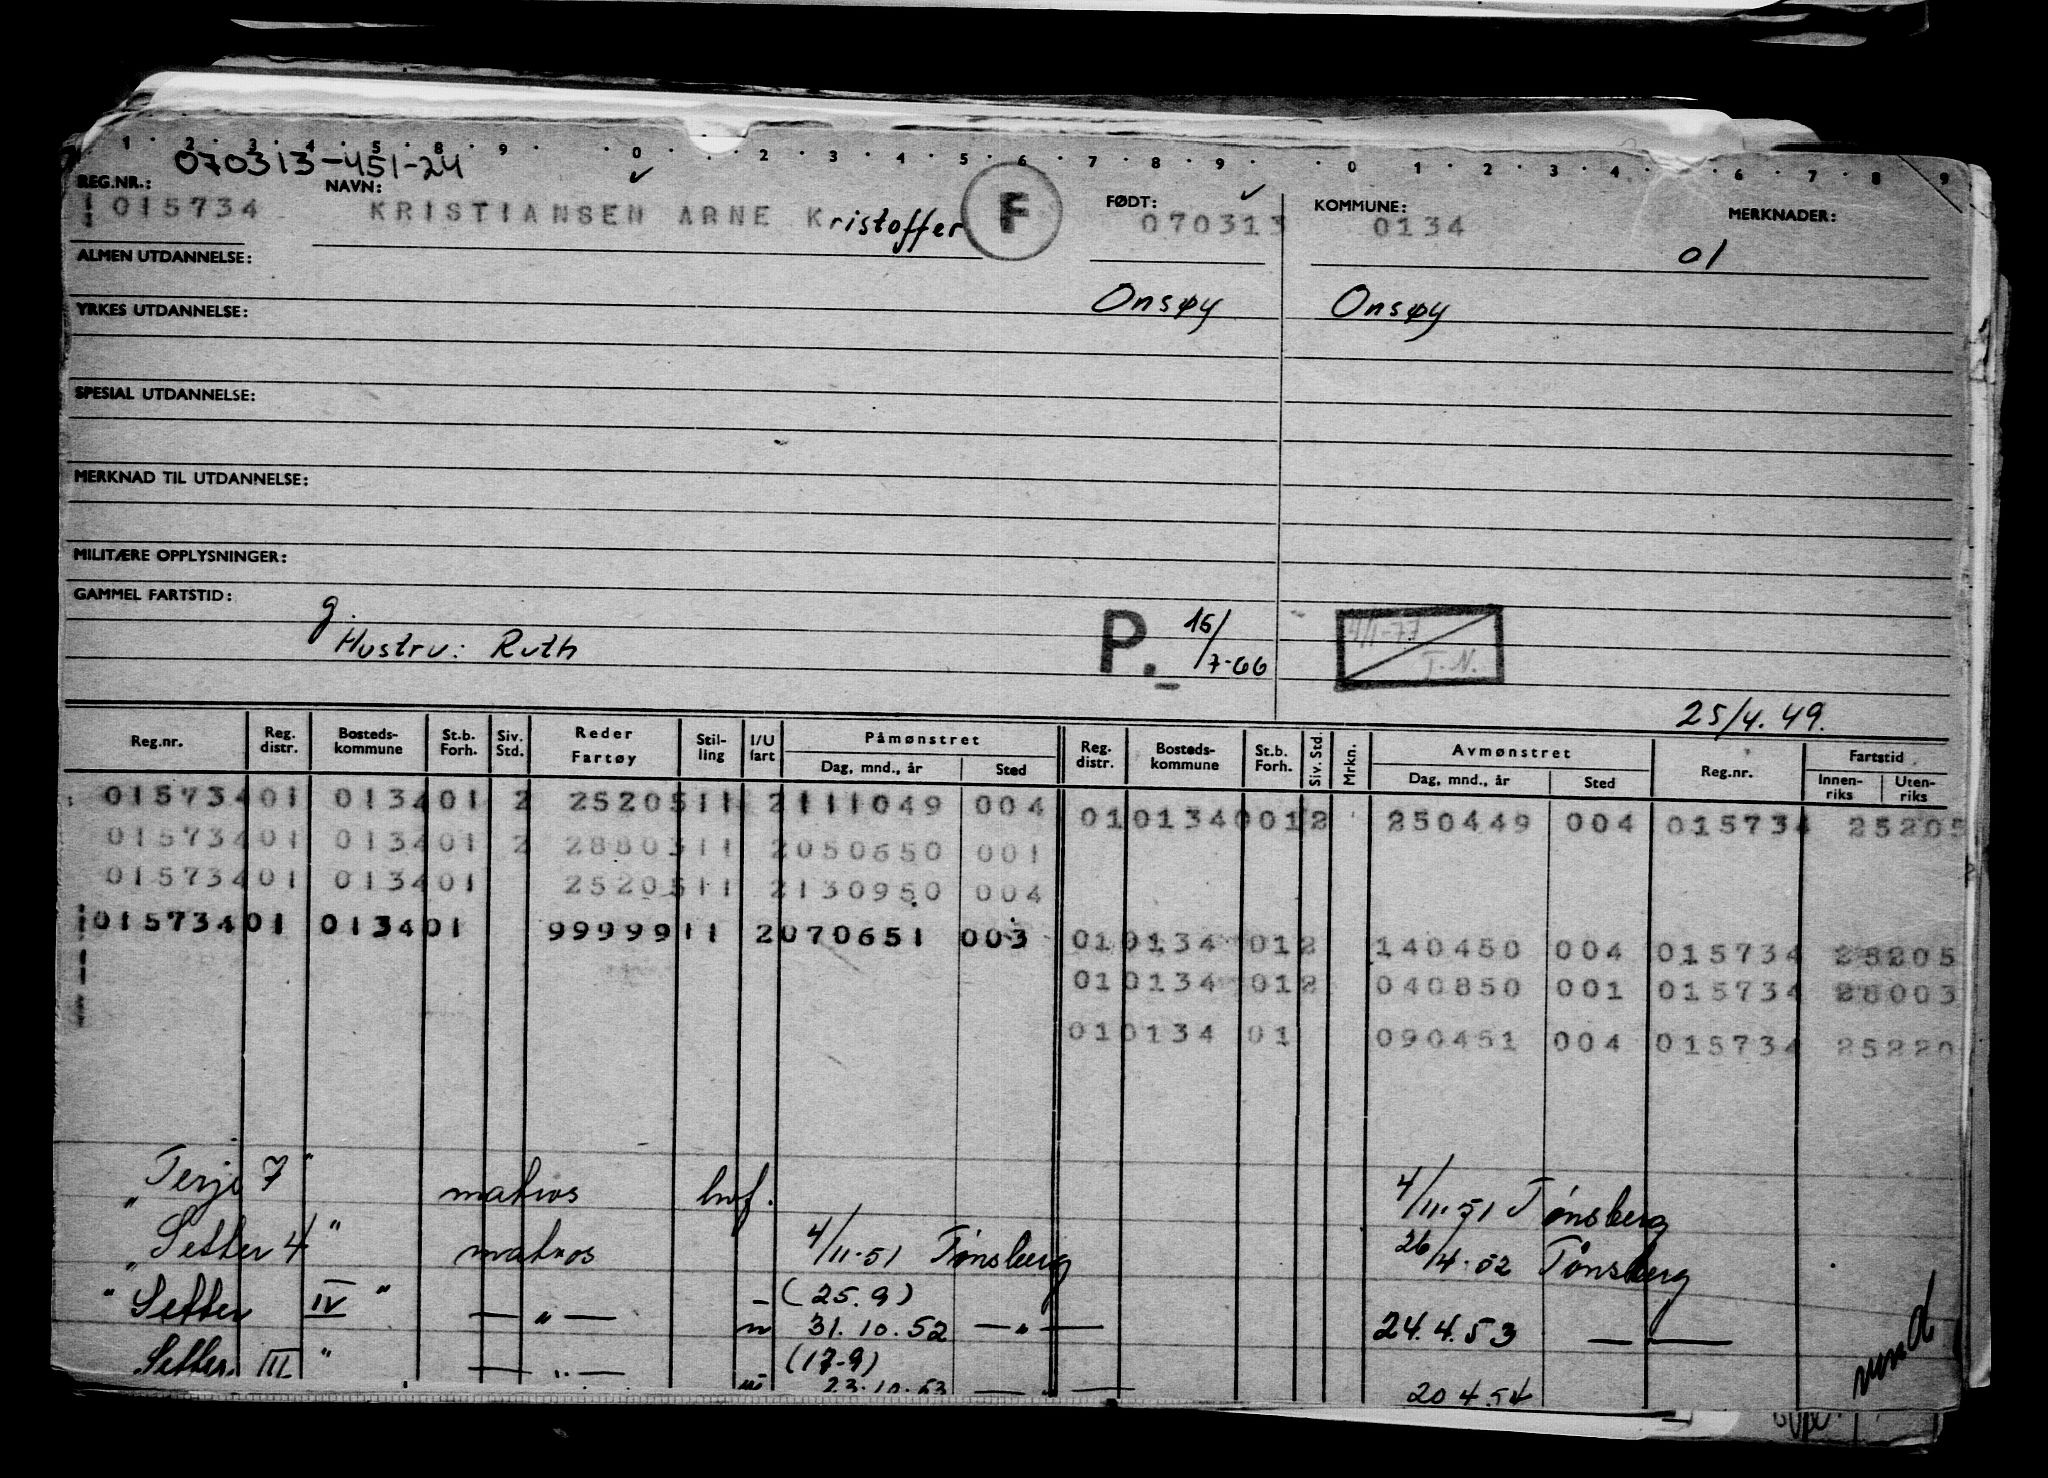 1 2 3 4 5 8 9 0 2 3 4 5 6 7 8 9 0 1 2 3 4 6 7 8 9
070313-451-24
REG.NR.: NAVN: FØDT: KOMMUNE: MERKNADER:
015734 KRISTIANSEN ARNE Kristoffer F 070313 0134
ALMEN UTDANNELSE: 01
YRKES UTDANNELSE: Onsøy Onsøy
SPESIAL UTDANNELSE:
MERKNAD TIL UTDANNELSE:
MILITÆRE OPPLYSNINGER:
GAMMEL FARTSTID:
g.
Hustru: Ruth P. 15/7-66 4/1-77 T.N.
25/4.49.
Reg.nr. Reg. distr. Bosteds-kommune St.b. Forh. Siv. Std. Reder Fartøy Stil-ling I/U fart Påmønstret Dag, mnd., år Sted Reg. distr. Bosteds-kommune St.b. Forh. Siv. Std. Mrkn. Avmønstret Dag, mnd., år Sted Reg.nr. Fartstid Innen-riks Uten-riks
015734 01 0134 01 2 25205 11 2 111049 004
01 0134 001 2 250449 004 015734 25205
015734 01 0134 01 2 28803 11 2 050650 001
015734 01 0134 01 25205 11 2 130950 004
015734 01 0134 01 99999 11 2 070651 003
01 0134 01 2 140450 004 015734 25205
01 0134 01 2 040850 001 015734 28003
01 0134 01 090451 004 015734 25220
"Terje 7" matros hvf. 4/11.51 Tønsberg
"Setter 4" matros 4/11.51 Tønsberg 26/4.52 Tønsberg
"Setter IV" — " — (25.9)
31.10.52 — " — 24.4.53 — —
Setter III" — " — (17-9)
23.10.53 — " — 20 4.54
vend